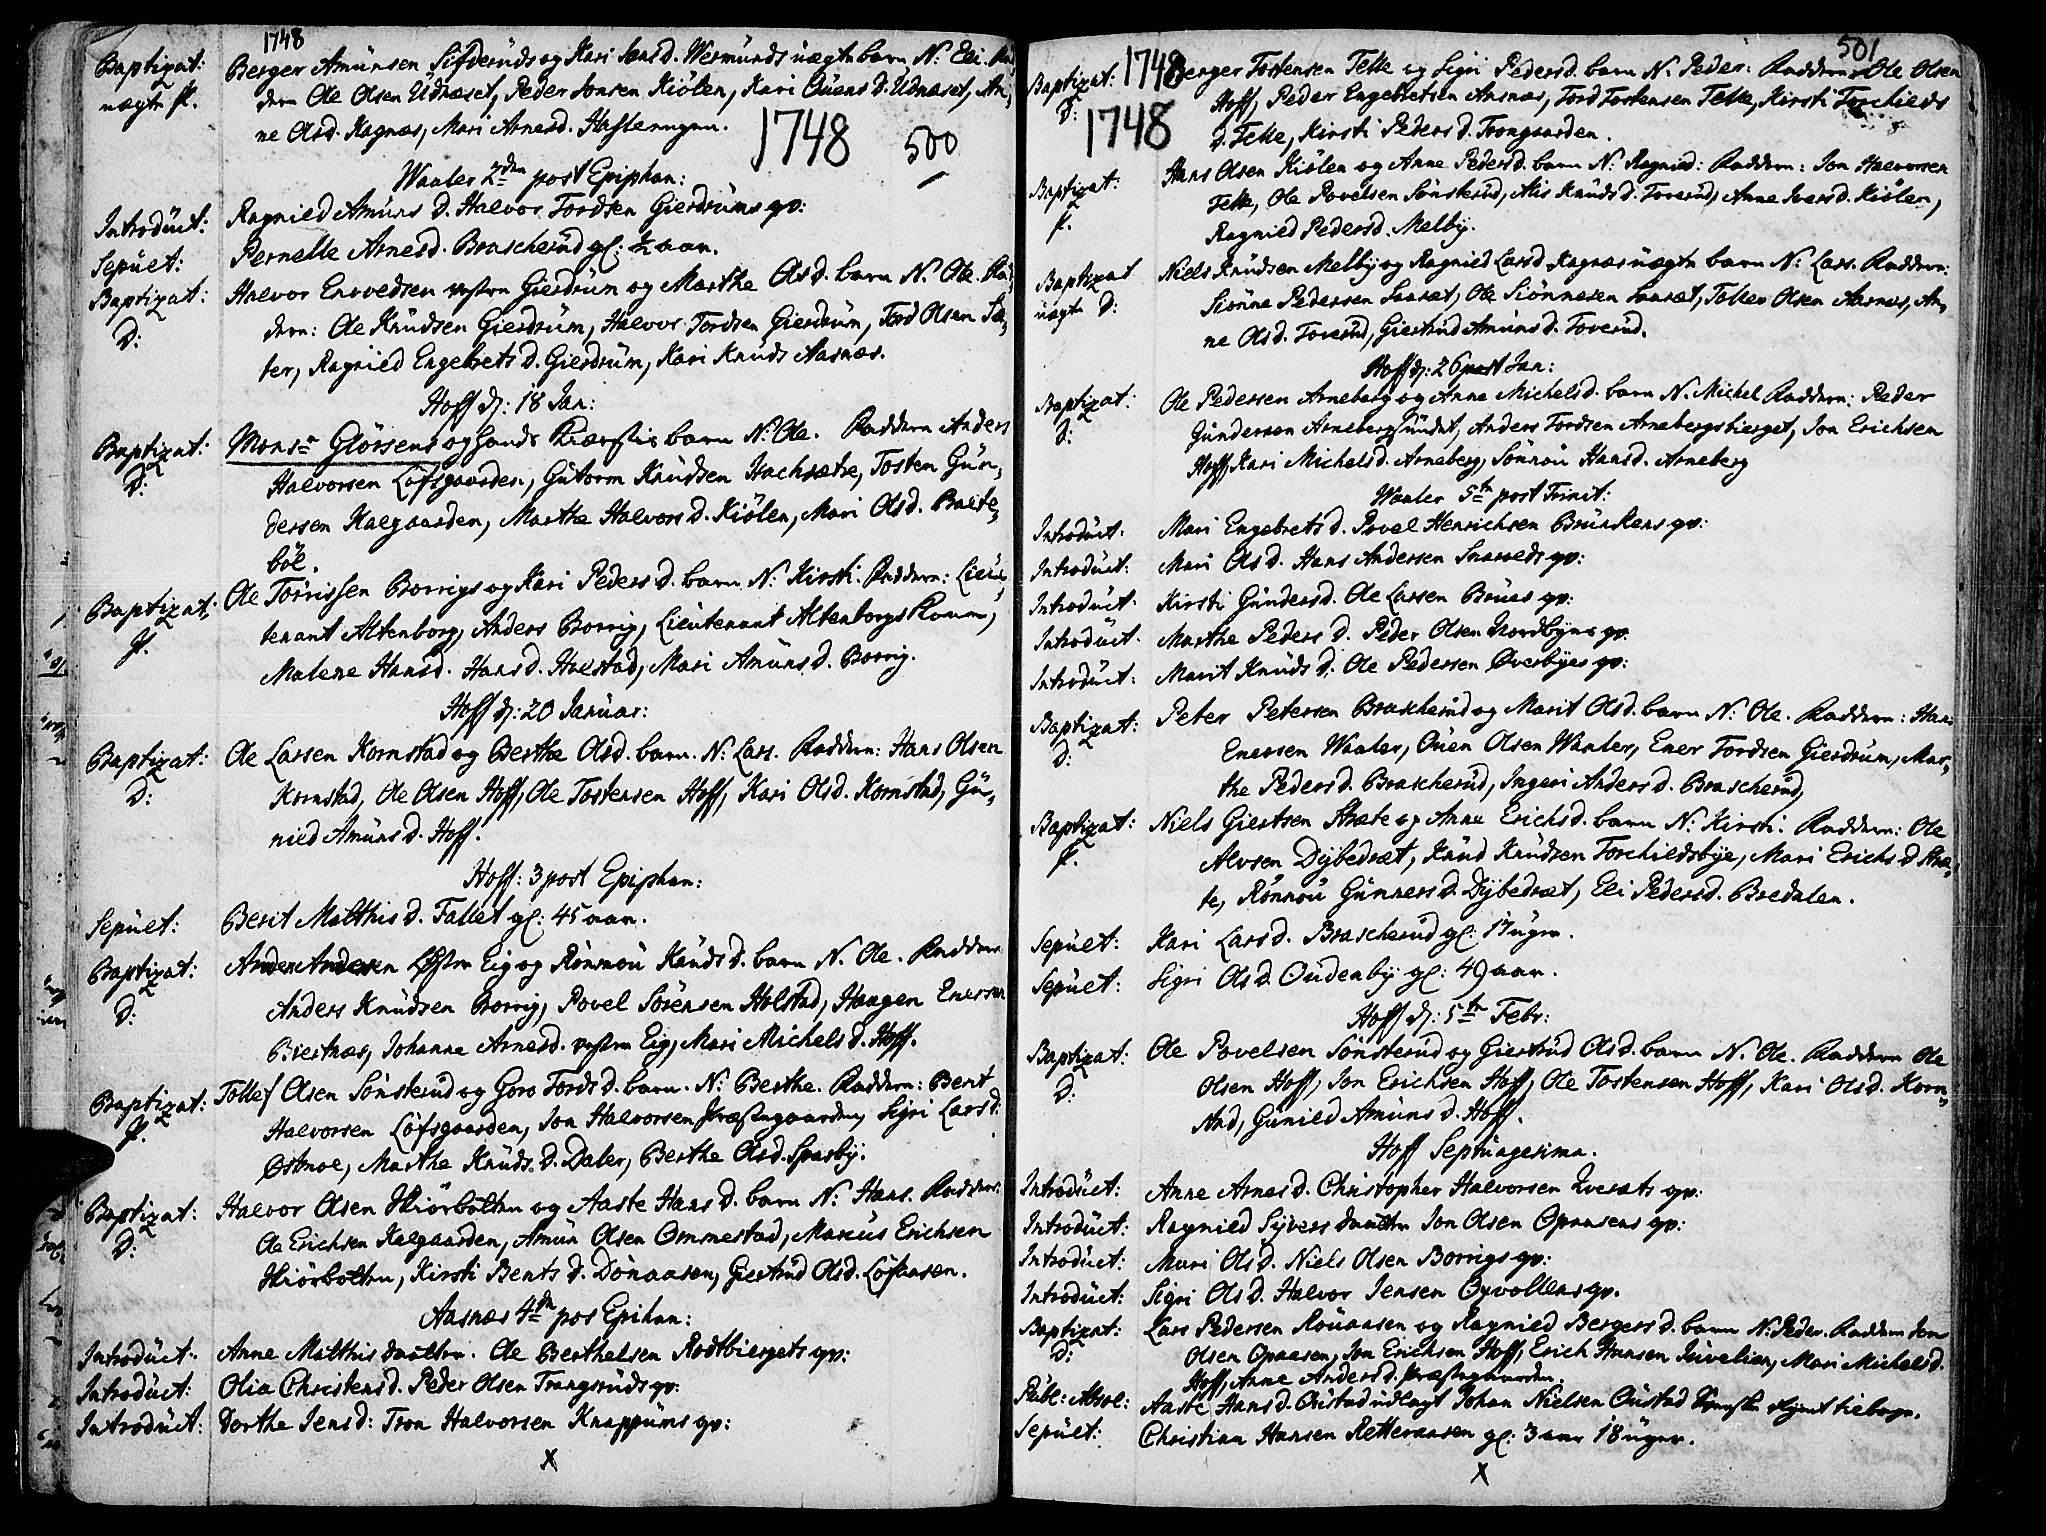 1748
Baptizat: Berger Amünsen Sifderüds og Kari Ions d. Wermünds üægte barn N: Eli.
üægte p. Ole Olsen Üdnæset, Peder Ionsen Kiölen, Kari Ouens d. Üdnæset, An,
ne Olsd. Kagnæs, Mari Arnesd.
1748 500
Waaler 2den post Epiphan:
Introdüct: Ragnied Amüns d. Halvor Fordsen Gierdrüms qv:
Sepüet: Pernelle Arnesd. Brascherüd gl: ½ aar.
Baptizat: Halvor Enevedsen vestre Gierdrüm og Marthe Olsd. barn N: Ole.
D: Ole Knüdsen Gierdrüm, Halvor Fordsen Gierdrüm, Ford Olsen Sæ,
ter, Ragnied Engebrets d. Gierdrüm, Kari Knüds Aasnæs.
Hoff d: 18 Jan:
Baptizat: Monsr Glörsens og barn N: Ole. Faddern Anders
D: Halvorsen Löfsgaarden, Gütorm Knüdsen Tosten Gün,
dersen Kaegaarden, Marthe Halvors d. Kiölen, Mari Olsd. Braate,
böl.
Baptizat: Ole Törrissen Borrigs og Kari Peders d. barn N: Kirsti. Faddern: Lieü,
p. tenant Altenborg, Anders Borrig, Lieütenant Altenborgs
Malene Hansd. Hans d. Holstad, Mari Amüns d. Borrig.
Hoff d: 20 Janüar:
Baptizat: Ole Larsen Kornstad og Berthe Olsd. barn. N: Lars. Faddern: Hans Olsen
D: Kornstad, Ole Olsen Hoff, Ole Tostensen Hoff, Kari Olsd. Kornstad, Gü,
nied Amüns d. Hoff.
Hoff: 3 post Epiphan:
Sepüet: Berit Matthis d. Fallet gl: 45 aar.
Baptizat: Anders Andersen Østre Eig og Rönnoü Knüds d. barn N. Ole. Faddern
D: Anders Knüdsen Borrig, Povel Sörensen Holstad, Haagen Enersen
Biertnæs, Johanne Arnesd. vestre Eig, Mari Michels d. Hoff.
Baptizat: Tollef Olsen Sönsterüd og Goro Fords d. barn. N: Berthe. Faddern: Berit
p. Halvorsen Löfsgaarden, Ion Halvorsen Præstegaarden, Sigri Lars d.
Østmoe, Marthe Knüds. d. Daler, Berthe Olsd. Sparby.
Baptizat: Halvor Olsen Kiörbolten og Aaste Hans d. barn N: Hans. Faddern:
D: Ole Erichsen Kaegaarden, Amün Olsen Ommestad, Marcus Erichsen
Kiörbolten, Kirsti Bents d. Dönaasen, Giertrüd Olsd. Löfaasen.
Aasnæs 4de pos Epihan:
Introdüct: Anne Matthis daatter. Ole Berthelsen Rodtbiergets qv:
Introdüct: Olia Christens d. Peder Olsen Trangsrüds qv:
Introdüct: Dorthe Iens d: Tron Halvorsen Knappüms qv:
X
501
1748
1748
Baptizat: Berger Tostensen Telle og Sigri Pedersd. barn N. Peder: Faddern Ole Olsen
D: Hoff, Peder Engebretsen Aasnæs, Ford Tostensen Telle, Kirsti Torchields
d. Telle, Kirsti Peders d. Trongaarden.
Baptizat: Hans Olsen Kiölen og Anne Pedersd. barn N: Ragnied: Faddern: Ion Halvorsen
p. Telle, Ole Povelsen Sönsterüd, Alis Knüds d. Toverüd, Anne Ivers d. Kiölen,
Ragnied Pedersd. Melby.
Baptizat Niels Knüdsen Melby og Ragnied Larsd. Kagnæs üægte barn N: Lars. Faddern:
üægte D: Siönne Pedersen Ole Siönnesen Tolles Olsen Aasnæs, An,
ne Olsd. Toverüd, Giertrüd Amüns d. Toverüd.
Hoff d: 26 Jan:
Baptizat: Ole Pedersen Arneberg og Anne Michels d. barn N. Michel Faddern: Peder
D: Gündersen Arneberg Anders Fordsen Arnebergsbierget, Ion Erichsen
Hoff, Kari Michelsd. Arneberg, Sönnoü Hansd. Arneberg
Waaler 5te post Trinit:
Introdüct: Mari Engebrets d. Povel Henrichsen qv:
Introdüct: Mari Ols d. Hans Andersen qv:
Introdüct: Kirsti Günders d. Ole Larsen Brües qv:
Introdüct: Marthe Peders d. Peder Olsen Nordbyes qv.
Introdüct: Marit Knüds d. Ole Pedersen Overbyes qv:
Baptizat: Peter Petersen Brascherüd og Marit Olsd. barn N: Ole. Faddern: Hans
D: Enersen Waaler, Ouen Olsen Waaler, Ener Fordsen Gierdrum, Mar,
the Peders d. Brascherüd, Ingeri Anders d. Brascherüd,
Baptizat: Niels Giertsen Stræte og Anne Erichs d. barn N: Kirsti. Faddern: Ole
p. Alvsen Dybedræt, Knüd Knüdsen Torchildsbye, Mari Erichs d. Stræ,
te, Rönnoü Günners d. Dybedræt, Eli Peders d. Bredalen.
Sepüet: Kari Lars d. Brascherüd gl: 17 üger.
Sepüet: Sigri Ols d. Oüdenby gl: 49 aar.
Hoff d: 5te Febr:
Baptizat: Ole Povelsen Sönsterüd og Giertrüd Olsd. barn N. Ole. Faddern Ole
D: Olsen Hoff, Ion Erichsen Hoff, Ole Tostensen Hoff, Kari Olsd. Korn,
stad, Günild Amüns d. Hoff.
Hoff Septüagesima.
Introdüct: Anne Arnes d. Christopher Halvorsen qv:
Introdüct: Ragnied Syvers daatter Ion Olsen Opaasens qv:
Introdüct: Mari Olsd. Niels Olsen Borrigs qv:
Introdüct: Sigri Olsd. Halvor Iensen Øyvollens qv.
Baptizat: Lars Pedersen Roüaasen og Ragnied Bergers d. barn N: Peder. Faddern Ion
D: Olsen Opaasen, Ion Erichsen Hoff, Erich Hansen Mari Michelsd.
Hoff, Anne Anders d. Præstegaarden.
Publ: Absol: Aaste Hans d. Oüstad üdlagt Johan Nielsen Oüstad
Sepüet: Christian Hansen gl: 3 aar 18 üger.
X